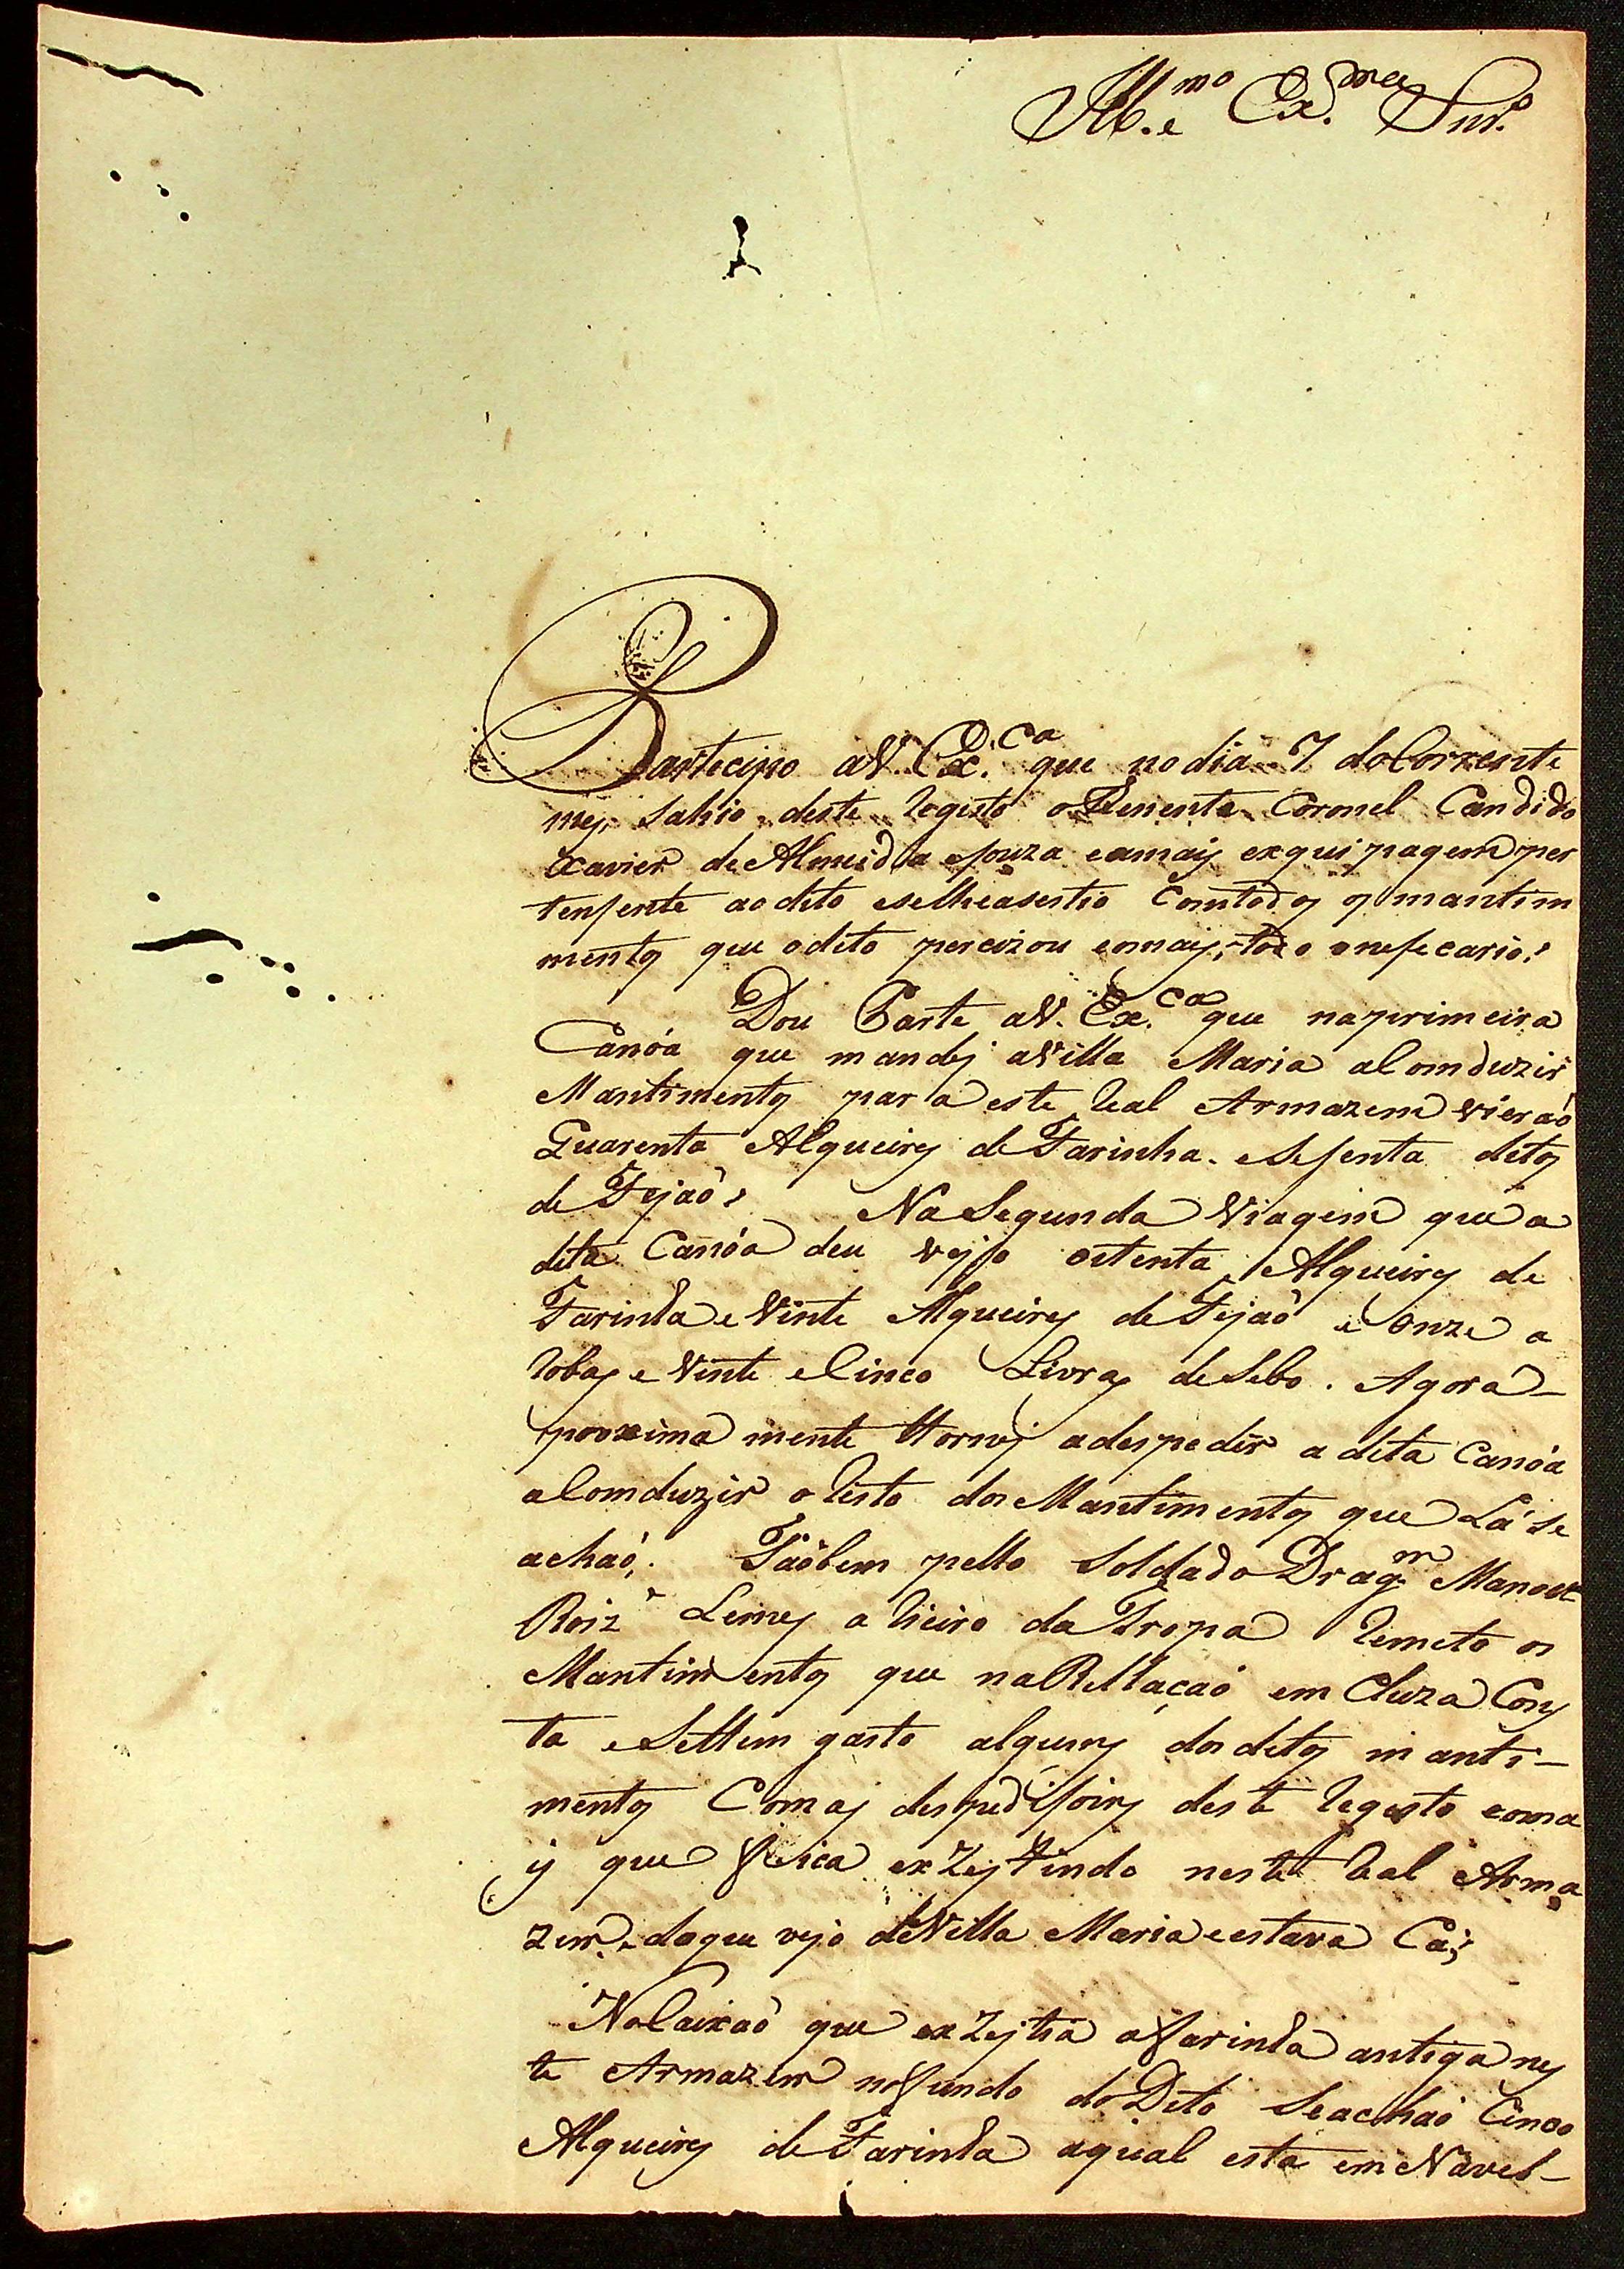 Ill.mo e Ex.mo Snr.
Partecipo aV. Ex.ca que no dia 7 do Corrente
mes sahio deste Registo o Tenente Coronel Candido
Xavier de Almeida eSouza eamais exquipagem per
tensente ao dito eselheasestio Comtodos os mantim
mentos que odito percizou eomais todo onesecario.
Dou Parte aV. Ex.ca que naprimeira
Canôa que mandej aVilla Maria aComduzir
Mantimentos para este Real Armazem vieraõ
Quarenta Alqueires de Farinha. eSesenta ditos
de Fejaõ. Na Segunda Viagem que a
dita Canôa deu vejo oitenta Alqueires de
Farinha e Vinte Alqueires de Fejaõ e Onze a
Robas e Vinte eCinco Livras deSebo. Agora
proxima mente ttornej adespedir a dita Canôa
aComduzir o Resto dos Mantimentos que Lá se
achaõ. Taõbem pello Soldado Drag.m Manoel
Roiz Lemes a Rieiro da Tropa Remeto os
Mantimentos que naRellaçaõ em Cluza Cons
ta eSettem gasto alguns dos ditos manti-
mentos Comas despedisoins deste Regesto eoma
is que fica exZestindo neste Real Arma
zem. doque vejo deVilla Maria eestava Cá;
NoCaixaõ que exZestia afarinha antiga nes
te Armazem nofundo doDito Seachaõ Cinco
Alqueires de Farinha aqual esta em Navel-